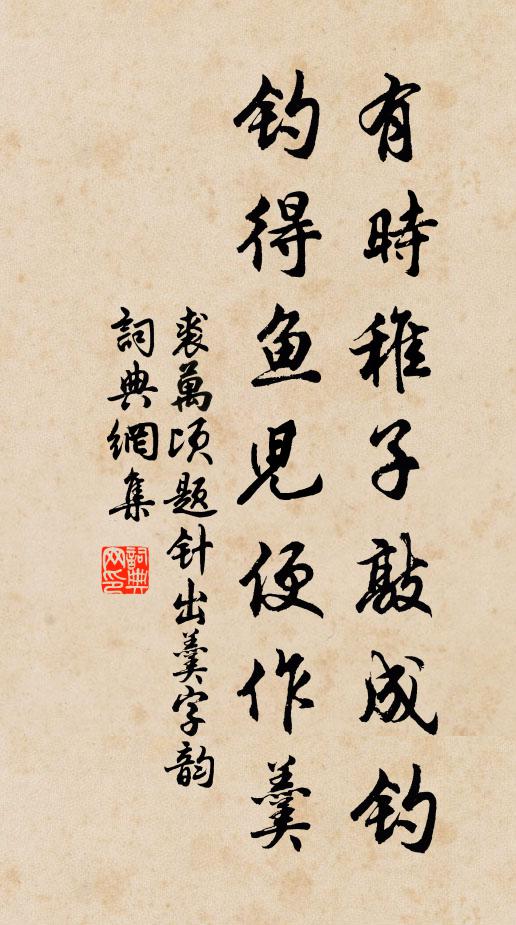 有時稚子敲成鈎
鈎得魚兒便作羹
裘萬頃題针出羹字韵
詞典網集
詞典網印